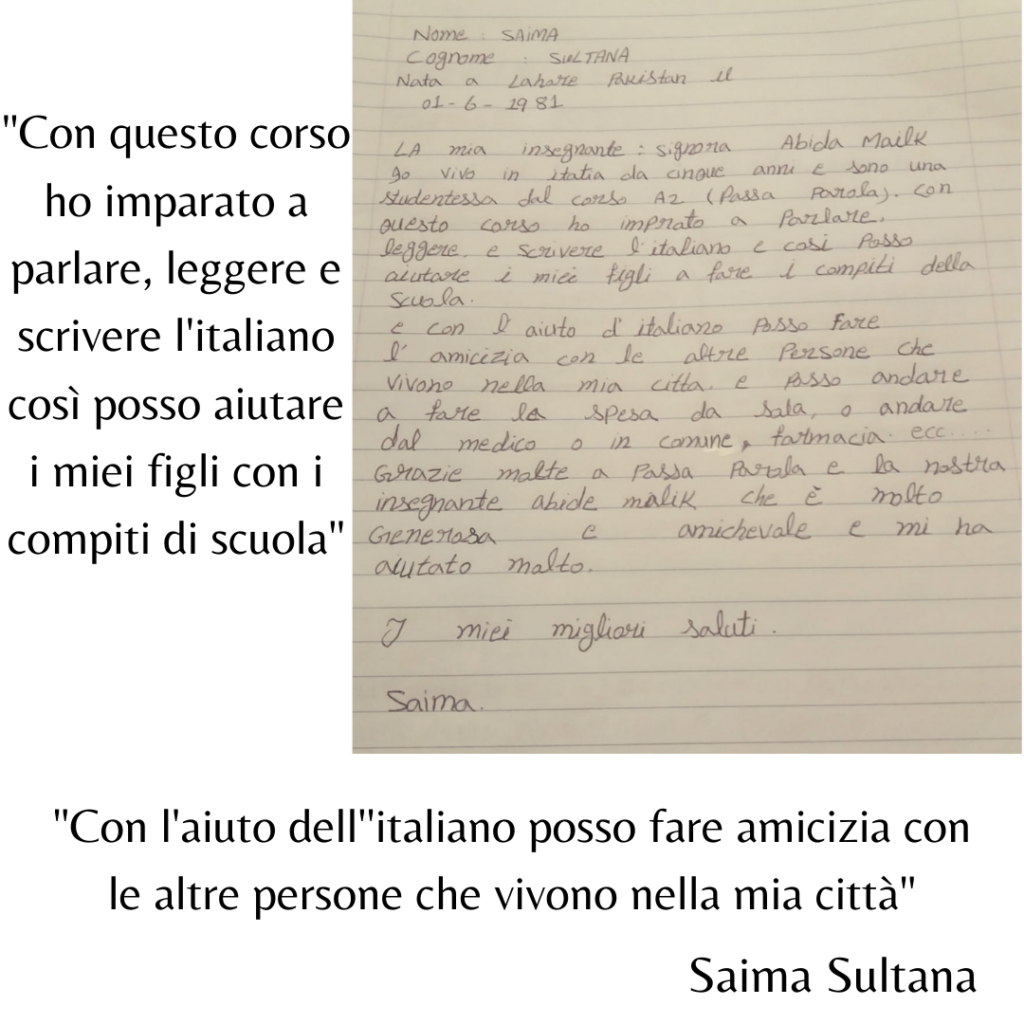 "Con questo corso
ho imparato a
parlare, leggere e
scrivere l'italiano
così posso aiutare
i miei figli con i
compiti di scuola"
Nome : SAIMA
Cognome : SULTANA
Nata a Lahare Pakistan il
01-6-1981
LA mia insegnante : signora Abida Mailk
Io vivo in itatia da cinque anni e sono una
studentessa dal corso A2 (Passa Parola). con
questo corso ho imprato a Parlare,
leggere, e scrivere l'italiano e cosi Posso
aiutare i miei figli a fare i compiti della
scuola.
e con l'aiuto d'italiano Posso fare
l'amicizia con le altre Persone che
vivono nella mia citta. e Posso andare
a fare la spesa da sala, o andare
dal medico o in comune, farmacia. ecc....
Grazie malte a Passa Parola e la nostra
insegnante abide malik che è molto
Generosa e amichevale e mi ha
aiutato malto.
I miei migliari saluti.
Saima.
"Con l'aiuto dell''italiano posso fare amicizia con
le altre persone che vivono nella mia città"
Saima Sultana